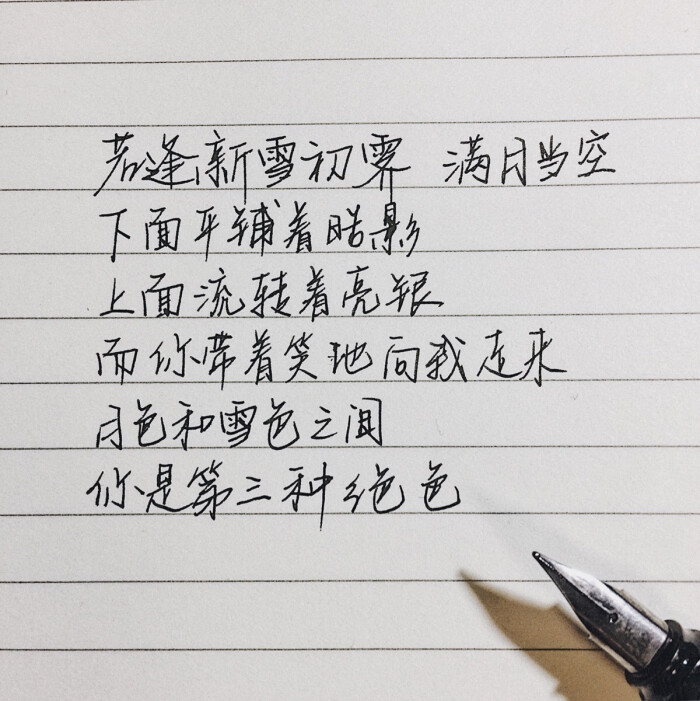 若逢新雪初霁 满月当空
下面平铺着皓影
上面流转着亮银
而你带着笑地向我走来
月色和雪色之间
你是第三种绝色